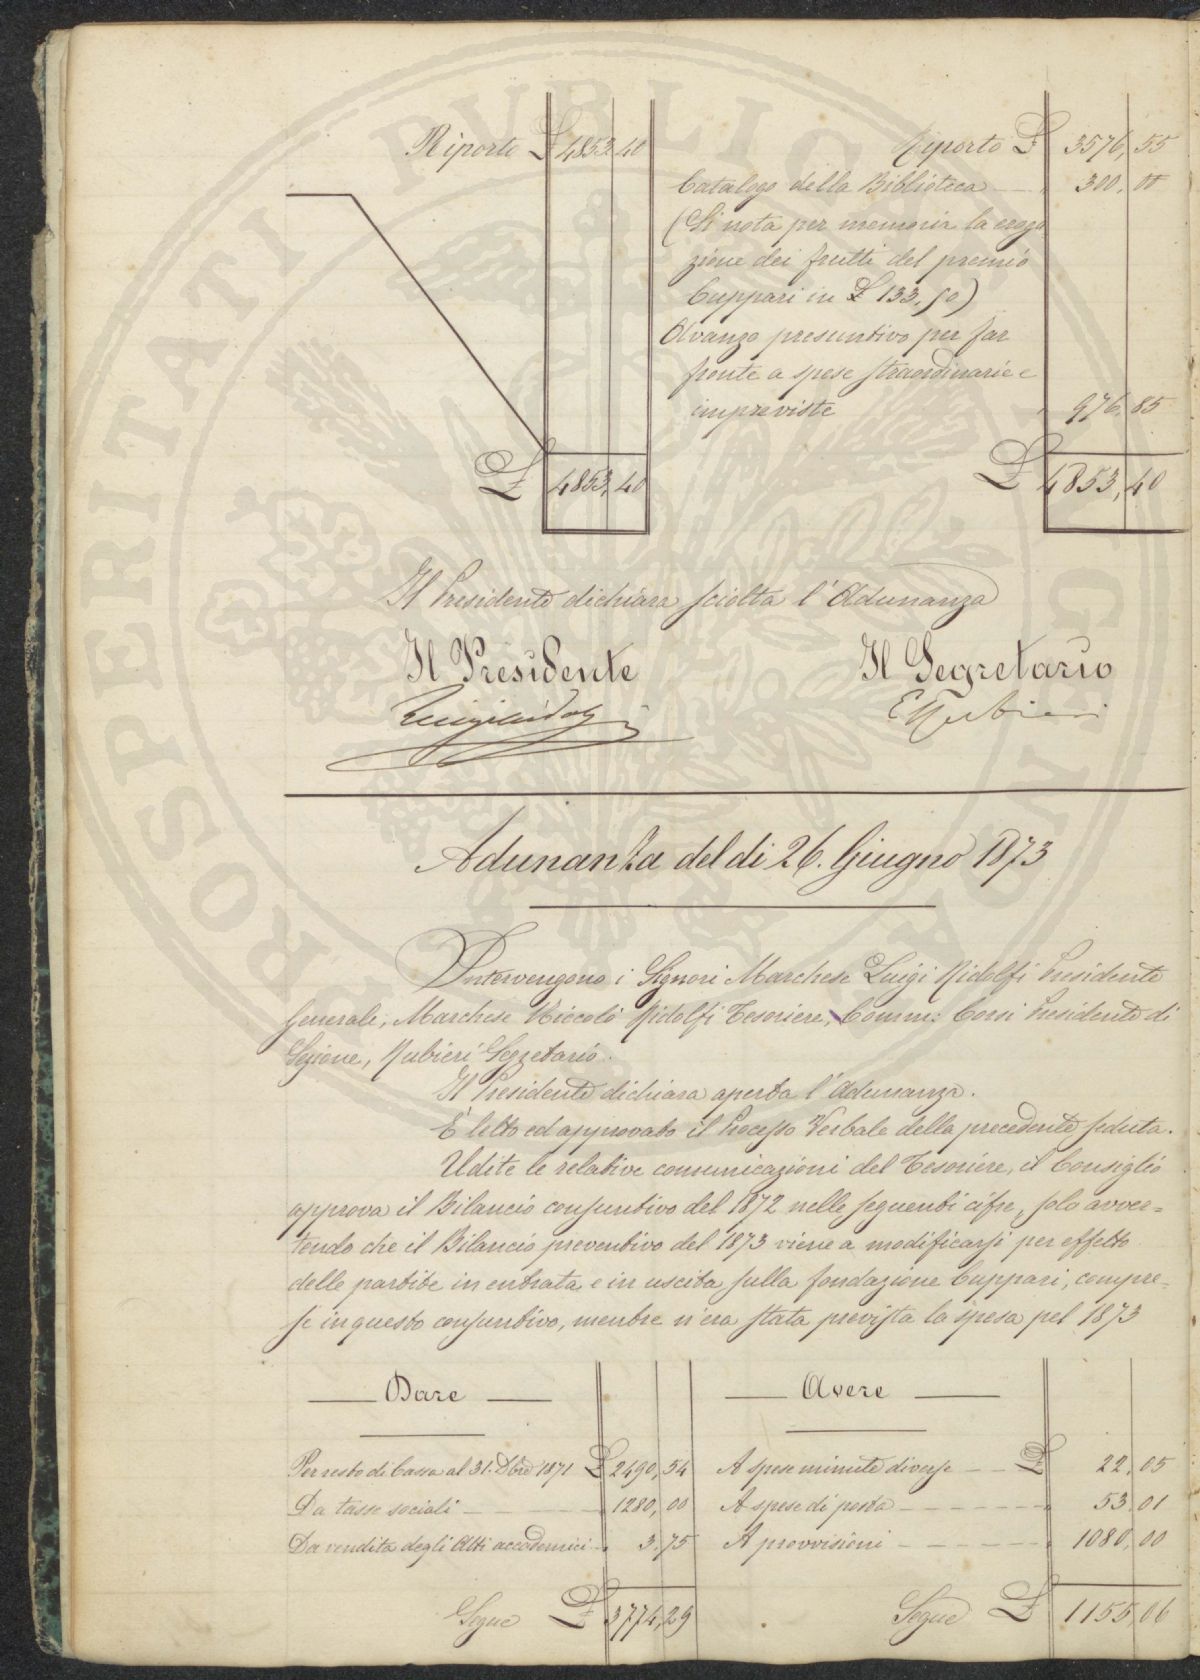 Riporto £ 4853,40
Riporto £ 3576,55
Catalogo della Biblioteca — 300,00
(Si nota per memoria la eroga
zione dei frutti del premio
Cuppari in £ 133,50)
Avanzo presuntivo per far
fronte a spese straordinarie e
impreviste 976,85
£ 4853,40
£ 4853,40
Il Presidente dichiara sciolta l'Adunanza
Il Presidente
Il Segretario
Luigi Ridolfi
E Rubieri
Adunanza del dì 26. Giugno 1873
Intervengono i Signori Marchese Luigi Ridolfi Presidente
Generale, Marchese Niccolò Ridolfi Tesoriere, Comm: Corsi Presidente di
Sezione, Rubieri Segretario.
Il Presidente dichiara aperta l'Adunanza.
È letto ed approvato il Processo Verbale della precedente seduta.
Udite le relative comunicazioni del Tesoriere, il Consiglio
approva il Bilancio consuntivo del 1872 nelle seguenti cifre, solo avver=
tendo che il Bilancio preventivo del 1873 viene a modificarsi per effetto
delle partite in entrata e in uscita sulla fondazione Cuppari, compre=
se in questo consuntivo, mentre n'era stata prevista la spesa pel 1873
— Dare —
— Avere —
Per resto di Cassa al 31. Dbre 1871 £ 2490,54
A spese minute diverse — £ 22,05
Da tasse sociali — 1280,00
A spese di posta — 53,01
Da vendita degli Atti accademici — 3,75
A provvisioni — 1080,00
Segue £ 3774,29
Segue £ 1155,06
PROSPERITATI PVBLICAE AVGENDAE